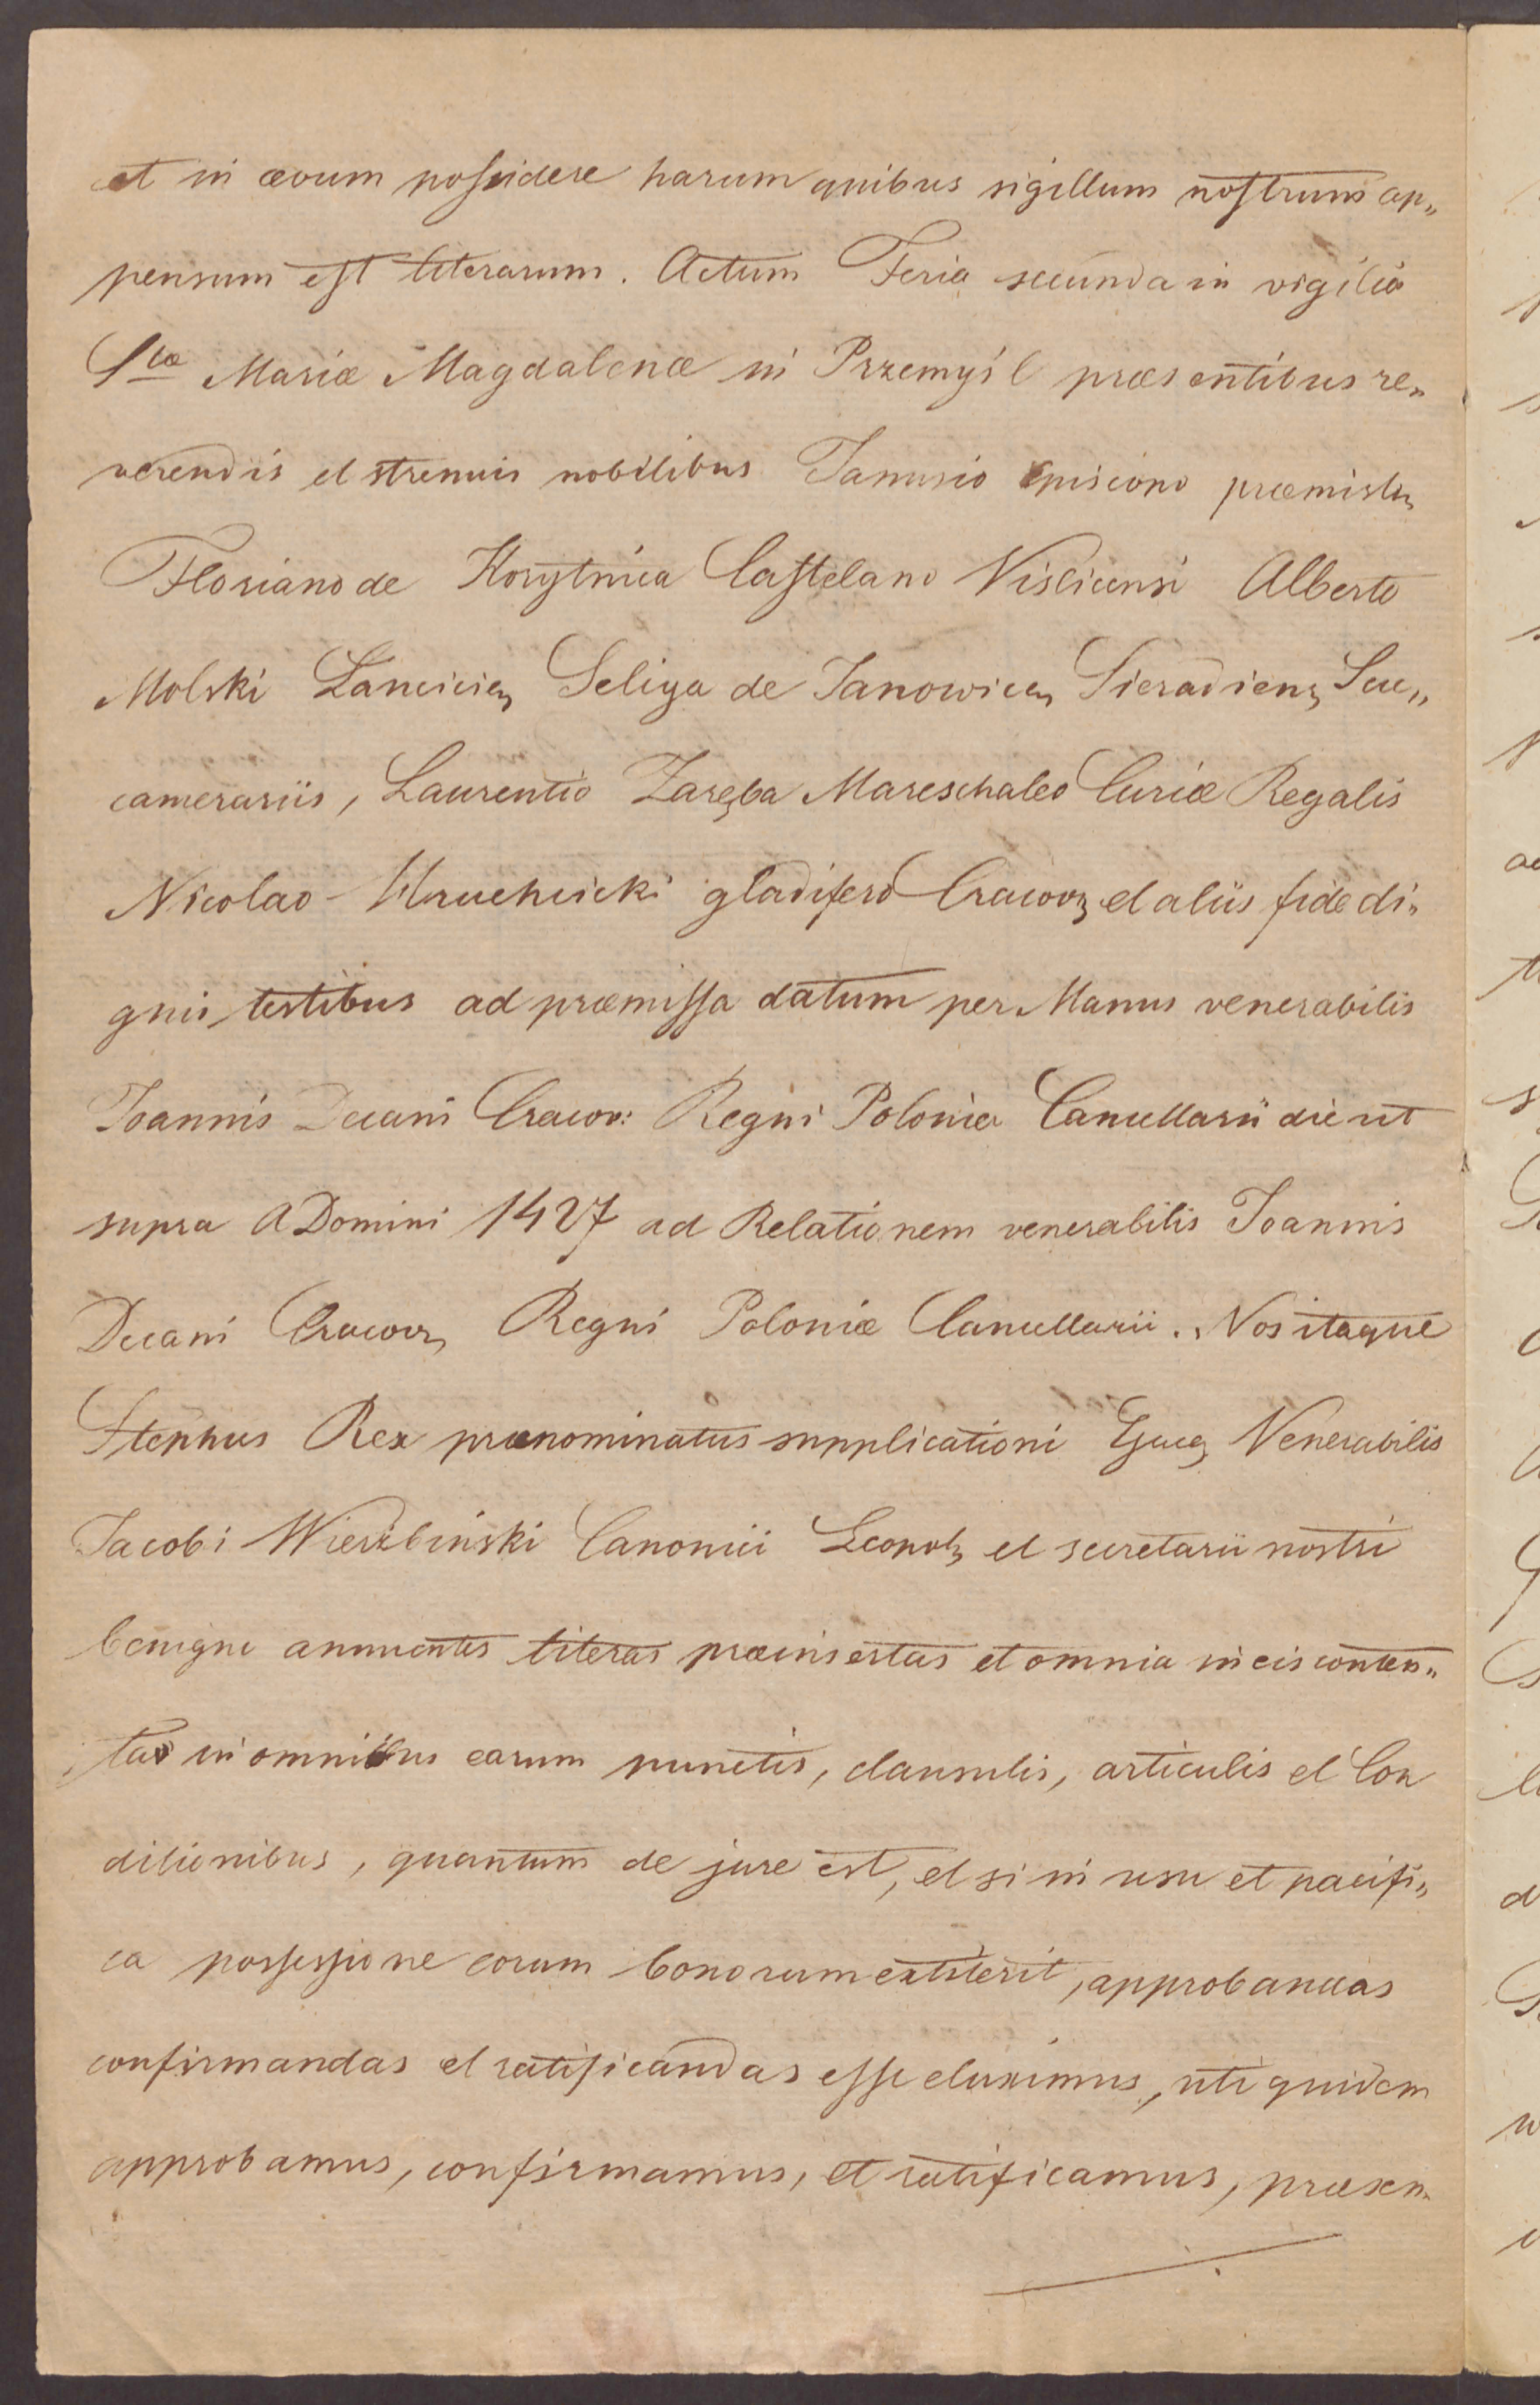 et in ævum possidere harum quibus sigillum nostrum ap„
pensum est literarum. Actum Feria secunda in vigilia
Stæ Mariæ Magdalenæ in Przemyśl præsentibus re„
verendis et strenuis nobilibus Janusio Episcopo præmisln
Floriano de Korytnica Castelano Vislicensi Alberto
Molski Lancicien Seliga de Janowicen Sieradienz Suc„
camerariis, Laurentio Zaręba Mareschalco Curiæ Regalis
Nicolao gladifero Cracovz et aliis fide di„
gnis testibus ad præmissa datum per Manus venerabilis
Joannis Decani Cracov: Regni Poloniæ Cancellarii die ut
supra A Domini 1427 ad Relationem venerabilis Joannis
Decani Cracovz Regni Poloniæ Cancellarii. Nos itaque
Stephus Rex prænominatus supplicationi Venerabilis
Jacobi Wierzbiński Canonici Leopolz et secretarii nostri
benigne annuentes literas præinsertas et omnia in eis conten„
tas in omnibus earum punctis, clausulis, articulis et Con
ditionibus, quantum de jure est, et si in usu et pacifi„
ca possessione eorum bonorum extiterit, approbandas
confirmandas et ratificandas esse duximus, uti quidem
approbamus, confirmamus, et ratificamus, præsen„